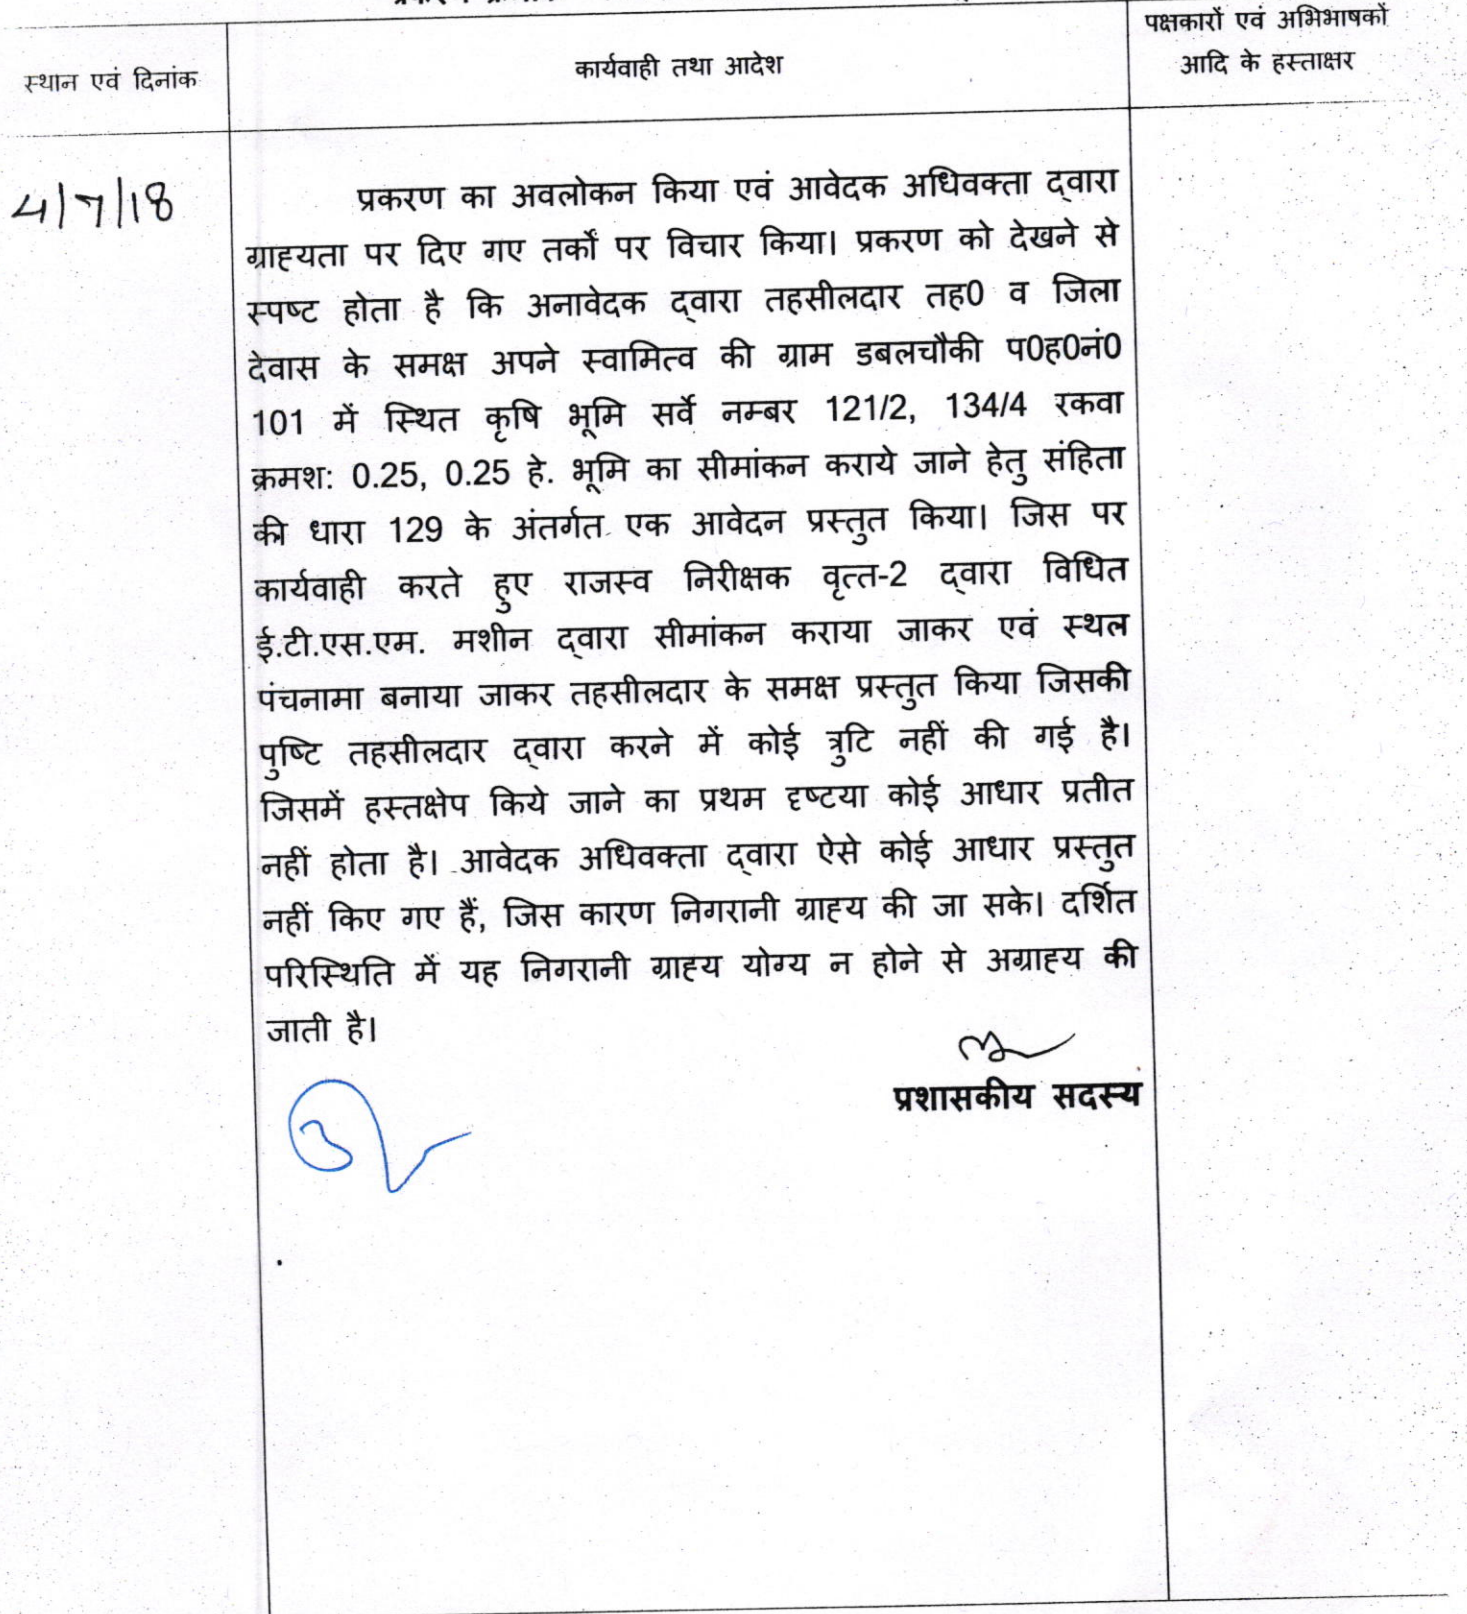 स्थान एवं दिनांक
कार्यवाही तथा आदेश
पक्षकारों एवं अभिभाषकों
आदि के हस्ताक्षर
4/7/18
प्रकरण का अवलोकन किया एवं आवेदक अधिवक्ता द्वारा
ग्राह्यता पर दिए गए तर्कों पर विचार किया। प्रकरण को देखने से
स्पष्ट होता है कि अनावेदक द्वारा तहसीलदार तह0 व जिला
देवास के समक्ष अपने स्वामित्व की ग्राम डबलचौकी प0ह0नं0
101 में स्थित कृषि भूमि सर्वे नम्बर 121/2, 134/4 रकवा
क्रमश: 0.25, 0.25 हे. भूमि का सीमांकन कराये जाने हेतु संहिता
की धारा 129 के अंतर्गत एक आवेदन प्रस्तुत किया। जिस पर
कार्यवाही करते हुए राजस्व निरीक्षक वृत्त-2 द्वारा विधित
ई.टी.एस.एम. मशीन द्वारा सीमांकन कराया जाकर एवं स्थल
पंचनामा बनाया जाकर तहसीलदार के समक्ष प्रस्तुत किया जिसकी
पुष्टि तहसीलदार द्वारा करने में कोई त्रुटि नहीं की गई है।
जिसमें हस्तक्षेप किये जाने का प्रथम दृष्टया कोई आधार प्रतीत
नहीं होता है। आवेदक अधिवक्ता द्वारा ऐसे कोई आधार प्रस्तुत
नहीं किए गए हैं, जिस कारण निगरानी ग्राह्य की जा सके। दर्शित
परिस्थिति में यह निगरानी ग्राह्य योग्य न होने से अग्राह्य की
जाती है।
प्रशासकीय सदस्य